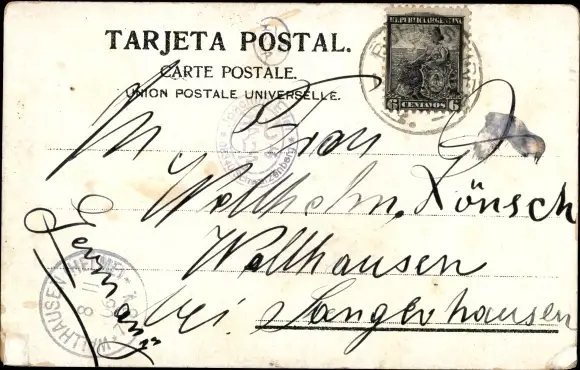 TARJETA POSTAL.
CARTE POSTALE.
UNION POSTALE UNIVERSELLE.
REPUBLICA ARGENTINA
6 CENTAVOS 6
Wilhelm Könsch
Wallhausen
bei Sangerhausen
Germany
WALLHAUSEN (HELME)